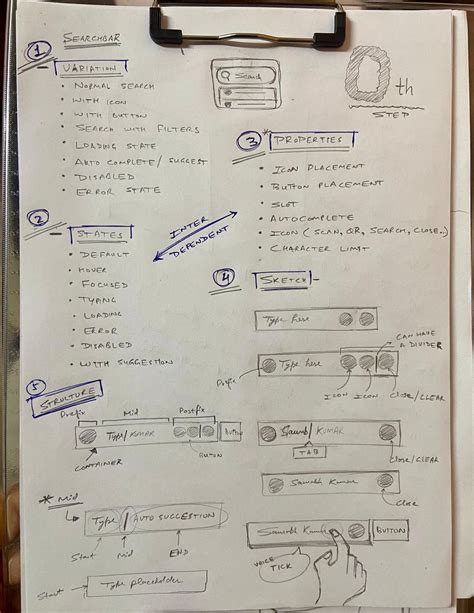 1
SEARCHBAR
VARIATION
NORMAL SEARCH
WITH ICON
WITH BUTTON
SEARCH WITH FILTERS
LOADING STATE
AUTO COMPLETE / SUGGEST
DISABLED
ERROR STATE
Search
0th
STEP
2
STATES
DEFAULT
HOVER
FOCUSED
TYPING
LOADING
ERROR
DISABLED
WITH SUGGESTION
INTER
DEPENDENT
3
*PROPERTIES
ICON PLACEMENT
BUTTON PLACEMENT
SLOT
AUTOCOMPLETE
ICON (SCAN, QR, SEARCH, CLOSE..)
CHARACTER LIMIT
4
SKETCH -
Type here
CAN HAVE
A DIVIDER
Type here
Prefix
ICON
ICON
Close/CLEAR
5
STRUCTURE
Prefix
Mid
Postfix
Type/ KUMAR
BUTTON
CONTAINER
BUTTON
Saurabh/ KUMAR
TAB
Close/CLEAR
Saurabh Kumar
Close
* Mid
Type / AUTO SUGGESTION
Start
Mid
END
Saurabh Kumar
BUTTON
VOICE
TICK
Start
Type placeholder